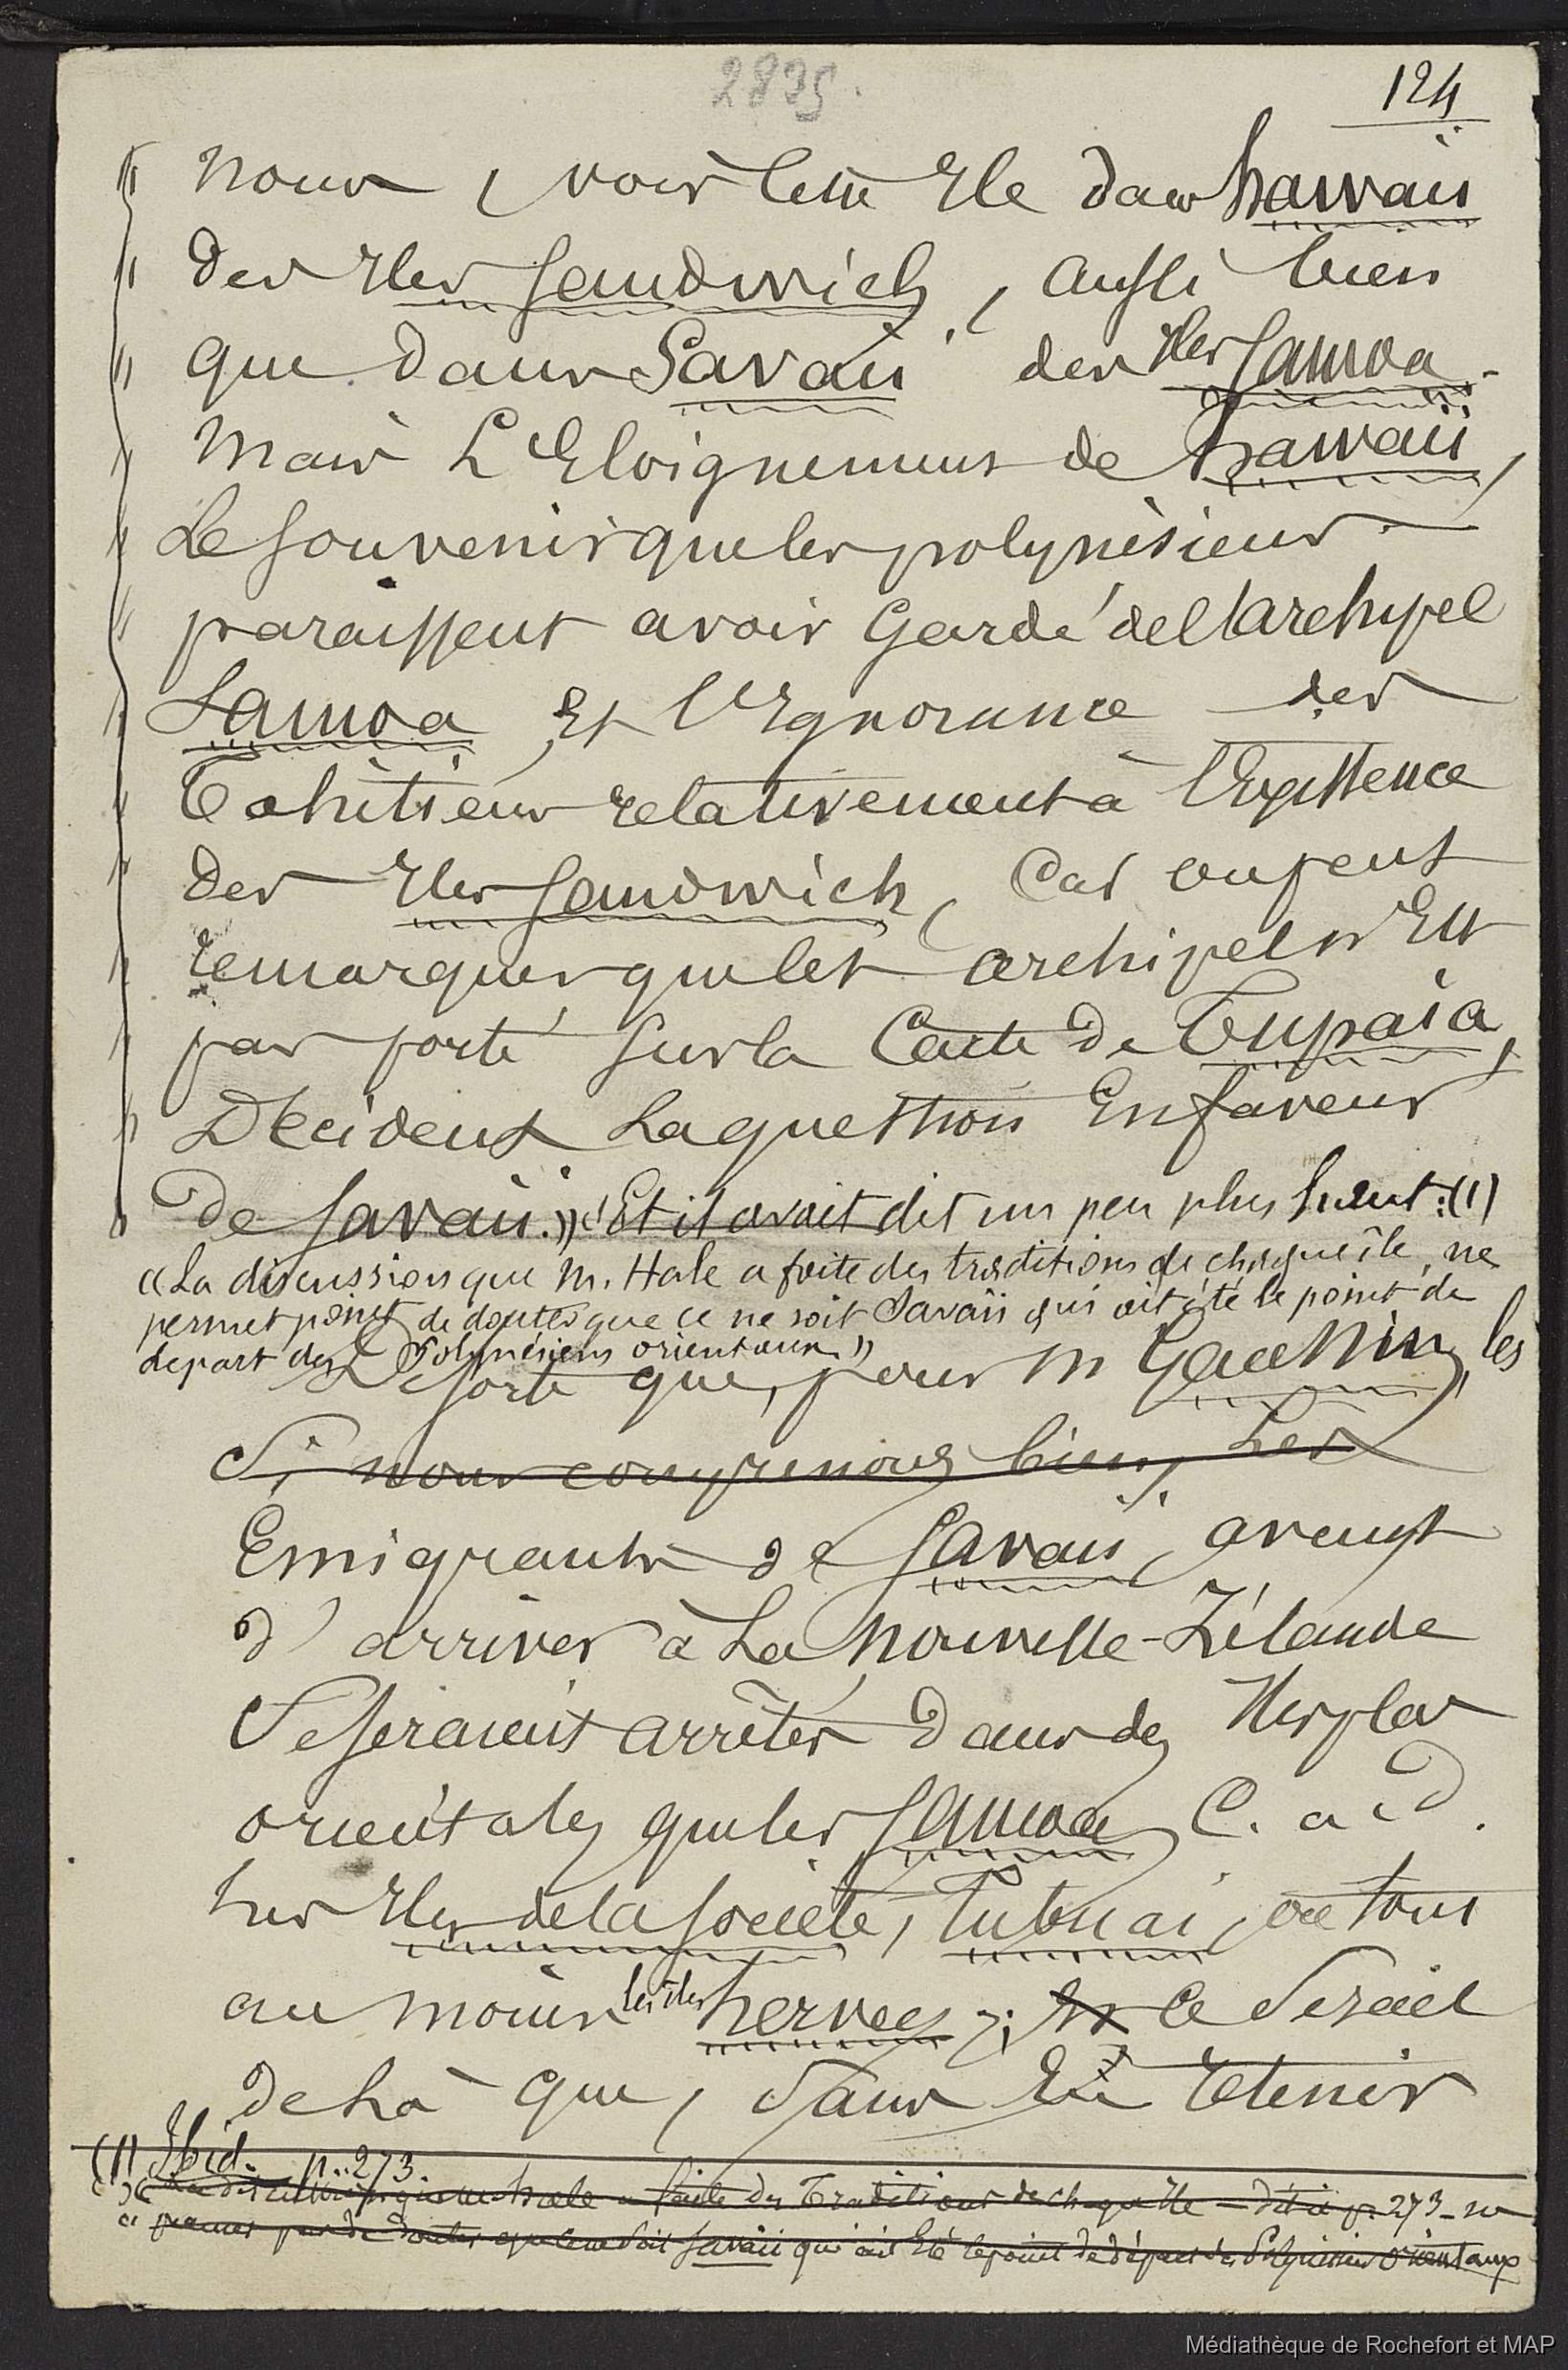 2895.
124
" nous, voir cette Ile dans hawaii
" des Iles Sandwich, aussi bien
" que dans Savaii des Iles Samoa.
" Mais L'Eloignement de hawaii,
" Le souvenir que les polynésiens
" paraissent avoir gardé de l'archipel
" Samoa Et l'Ignorance des
" Tahitiens relativement à l'Existence
" des Iles Sandwich, Car on peut
" remarquer que cet archipel n'Est
" pas porté sur la Carte de Tupaia,
" Décident La question En faveur
" de Savaii. » Et il avait dit un peu plus haut : (1)
« La discussion que M. Hale a faite des traditions de chaque île, ne
permet point de douter que ce ne soit Savaii qui ait été le point de
départ des Polynésiens orientaux »
De sorte que, pour M Gaussin, les
Si nous comprenons bien, Les
Emigrants de Savaii, avant
d'arriver à La Nouvelle-Zélande
Se seraient arrêtés dans des Iles plus
orientales que les Samoa, C. a. d.
les Iles de la Société, Tubuai, ou tout
au moins les îles hervey ; Et Ce Serait
de là que, sans En tenir
(1) Ibid. p. 273.
« La discussion que M. hale a faite des Traditions de chaque Ile — dit-il p. 273 — ne
« permet pas de douter que ce ne soit Savaii qui ait Eté le point de départ des Polynésiens orientaux
Médiathèque de Rochefort et MAP